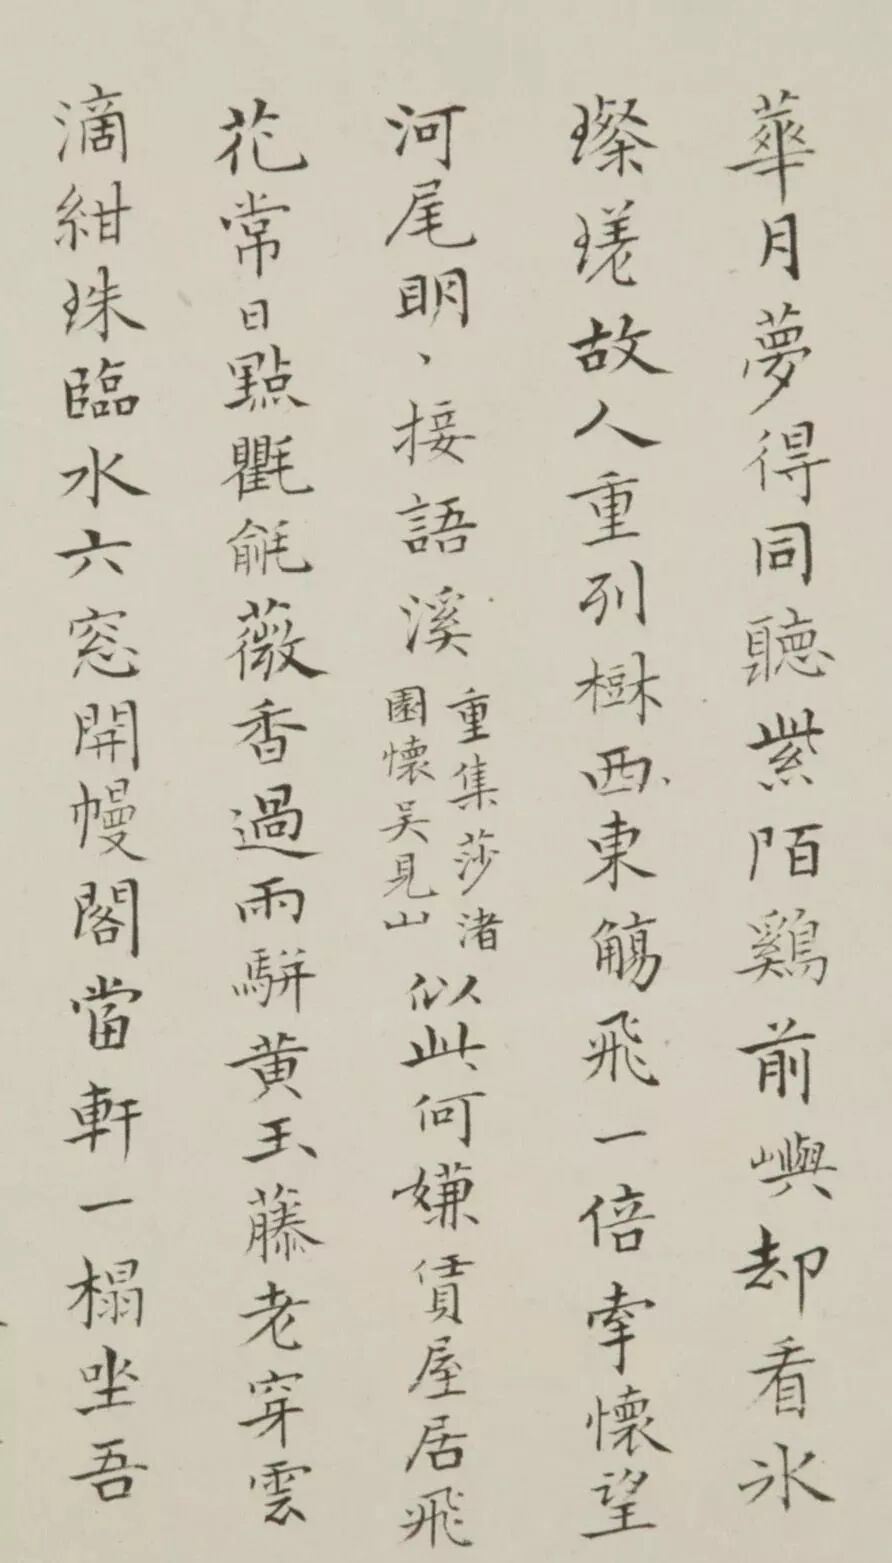 華月夢得同聽紫陌鷄前嶼却看冰
璨瑳故人重列樹西東觴飛一倍牽懷望
河尾明、接語溪
重集莎渚
園懷吴見山
似此何嫌賃屋居飛
花常日點氍毹薇香過雨駢黄玉藤老穿雲
滴紺珠臨水六窓開幔閣當軒一榻坐吾